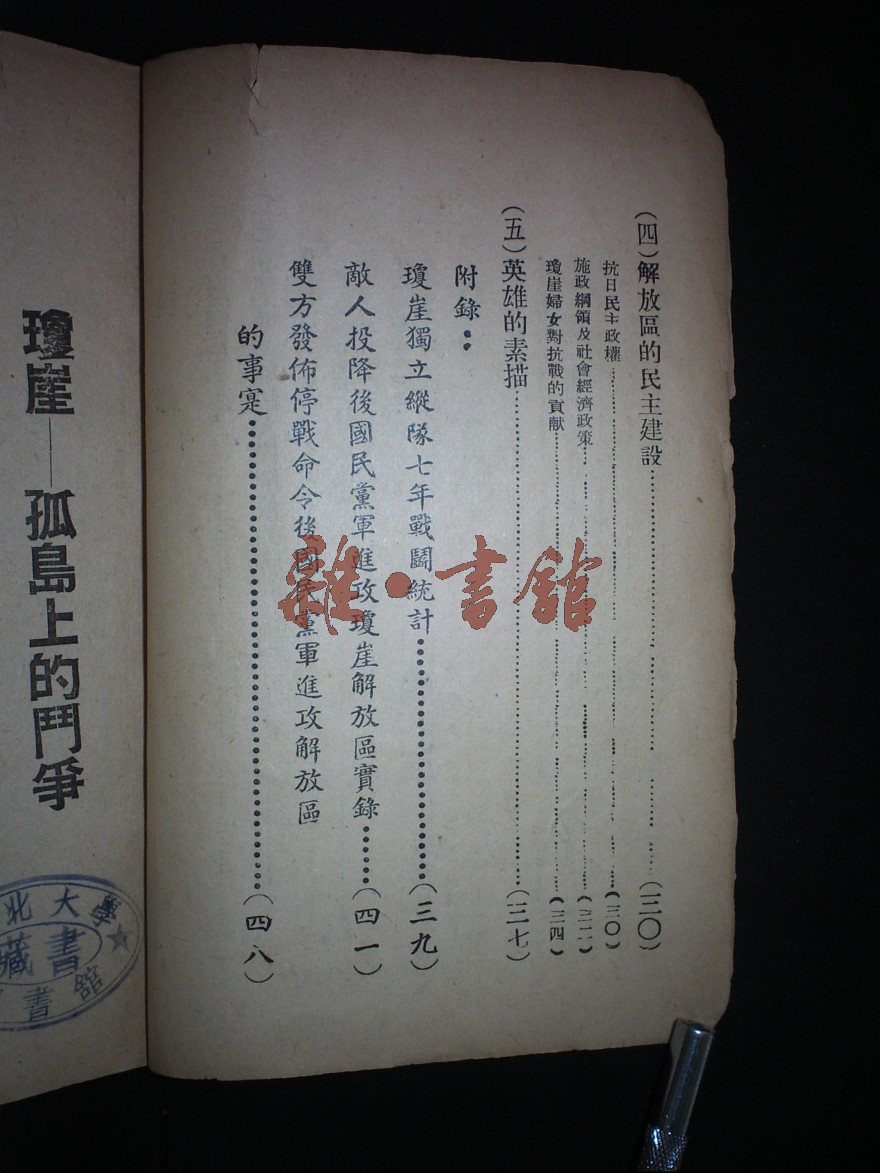 (四)解放區的民主建設……(三〇)
抗日民主政權……(三〇)
施政綱領及社會經濟政策……(三二)
瓊崖婦女對抗戰的貢献……(三四)
(五)英雄的素描……(三七)
附錄：
瓊崖獨立縱隊七年戰鬭統計……(三九)
敵人投降後國民黨軍進攻瓊崖解放區實錄……(四一)
雙方發佈停戰命令後國民黨軍進攻解放區
的事寔……(四八)
瓊崖——孤島上的鬥爭
北大學
藏書
書館
雜·書館